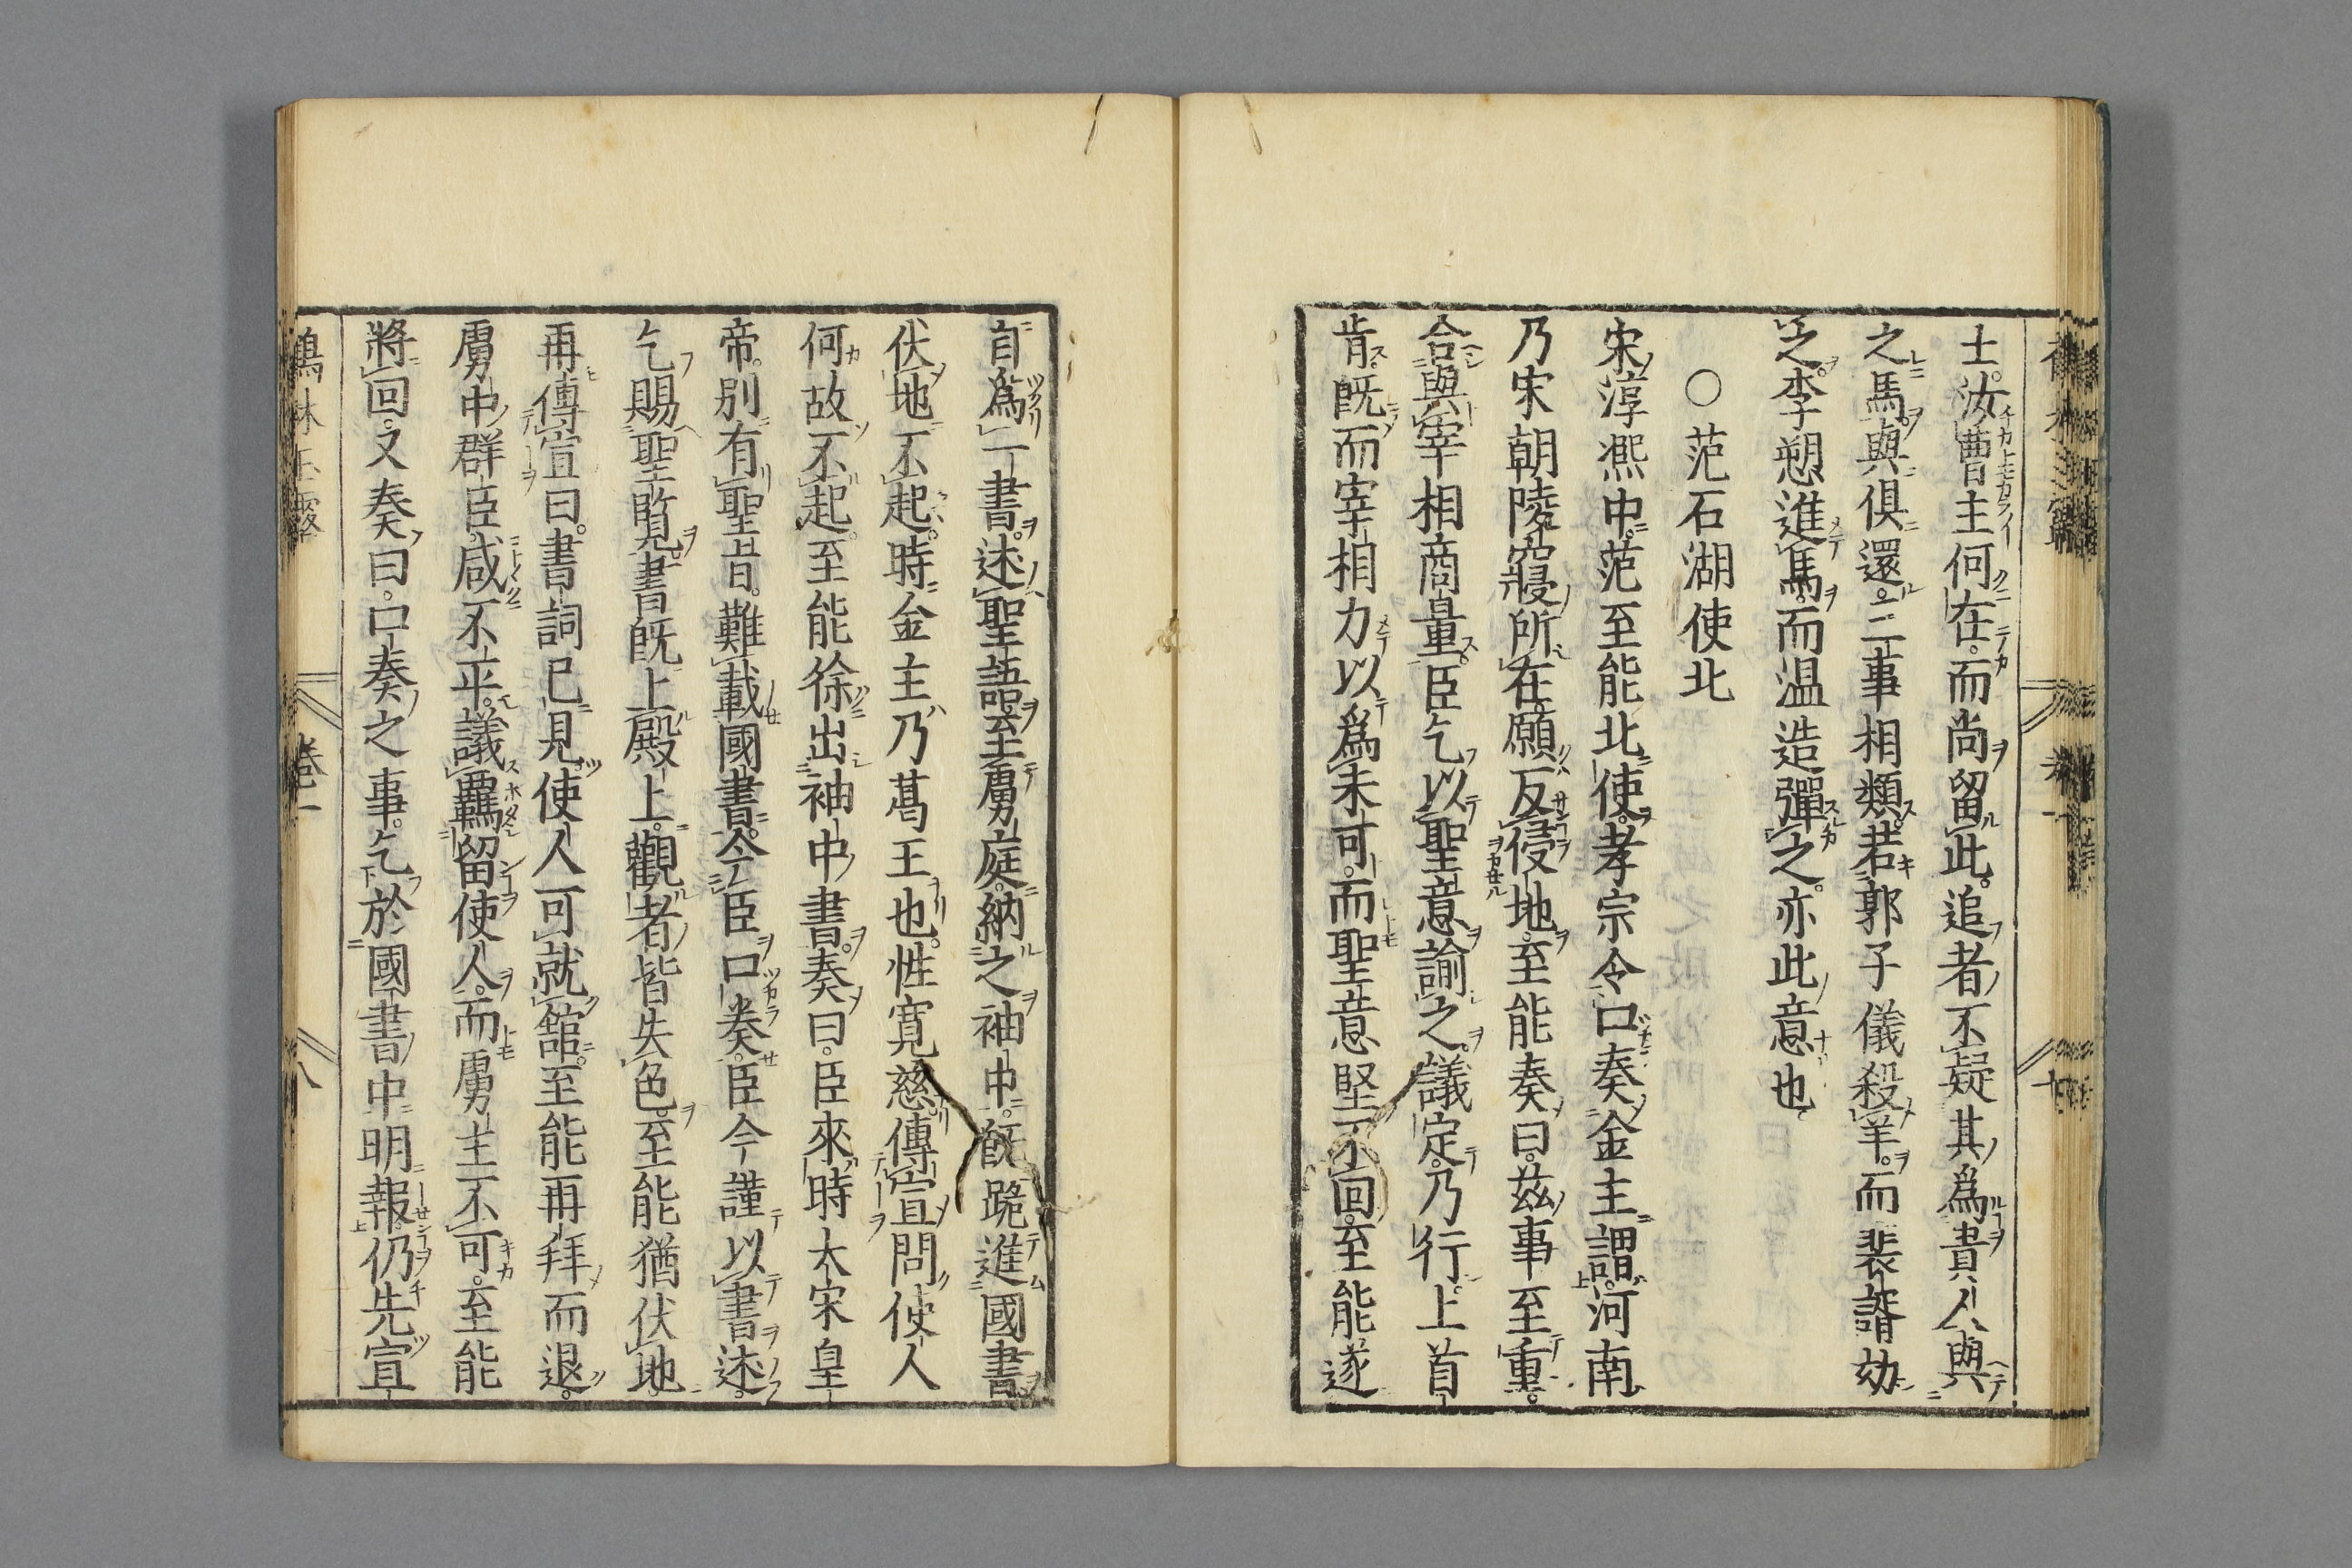 士汝曹主何在而尚留此追者不疑其爲貴人與
之馬與俱還二事相類若郭子儀殺羊而裴諝劾
之李愬進馬而温造彈之亦此意也
○范石湖使北
宋淳熙中范至能北使孝宗令口奏金主謂河南
乃宋朝陵寢所在願反侵地至能奏曰茲事至重
合與宰相商量臣乞以聖意諭之議定乃行上首
肯既而宰相力以爲未可而聖意堅不回至能遂
自爲一書述聖語至虜庭納之袖中既跪進國書
伏地不起時金主乃葛王也性寬慈傳宣問使人
何故不起至能徐出袖中書奏曰臣來時大宋皇
帝別有聖旨難載國書令臣口奏臣今謹以書述
乞賜聖覧書既上殿上觀者皆失色至能猶伏地
再傳宣曰書詞已見使人可就舘至能再拜而退
虜中群臣咸不平議羈留使人而虜主不可至能
將回又奏曰口奏之事乞於國書中明報仍先宣
鶴林玉露 卷一 八